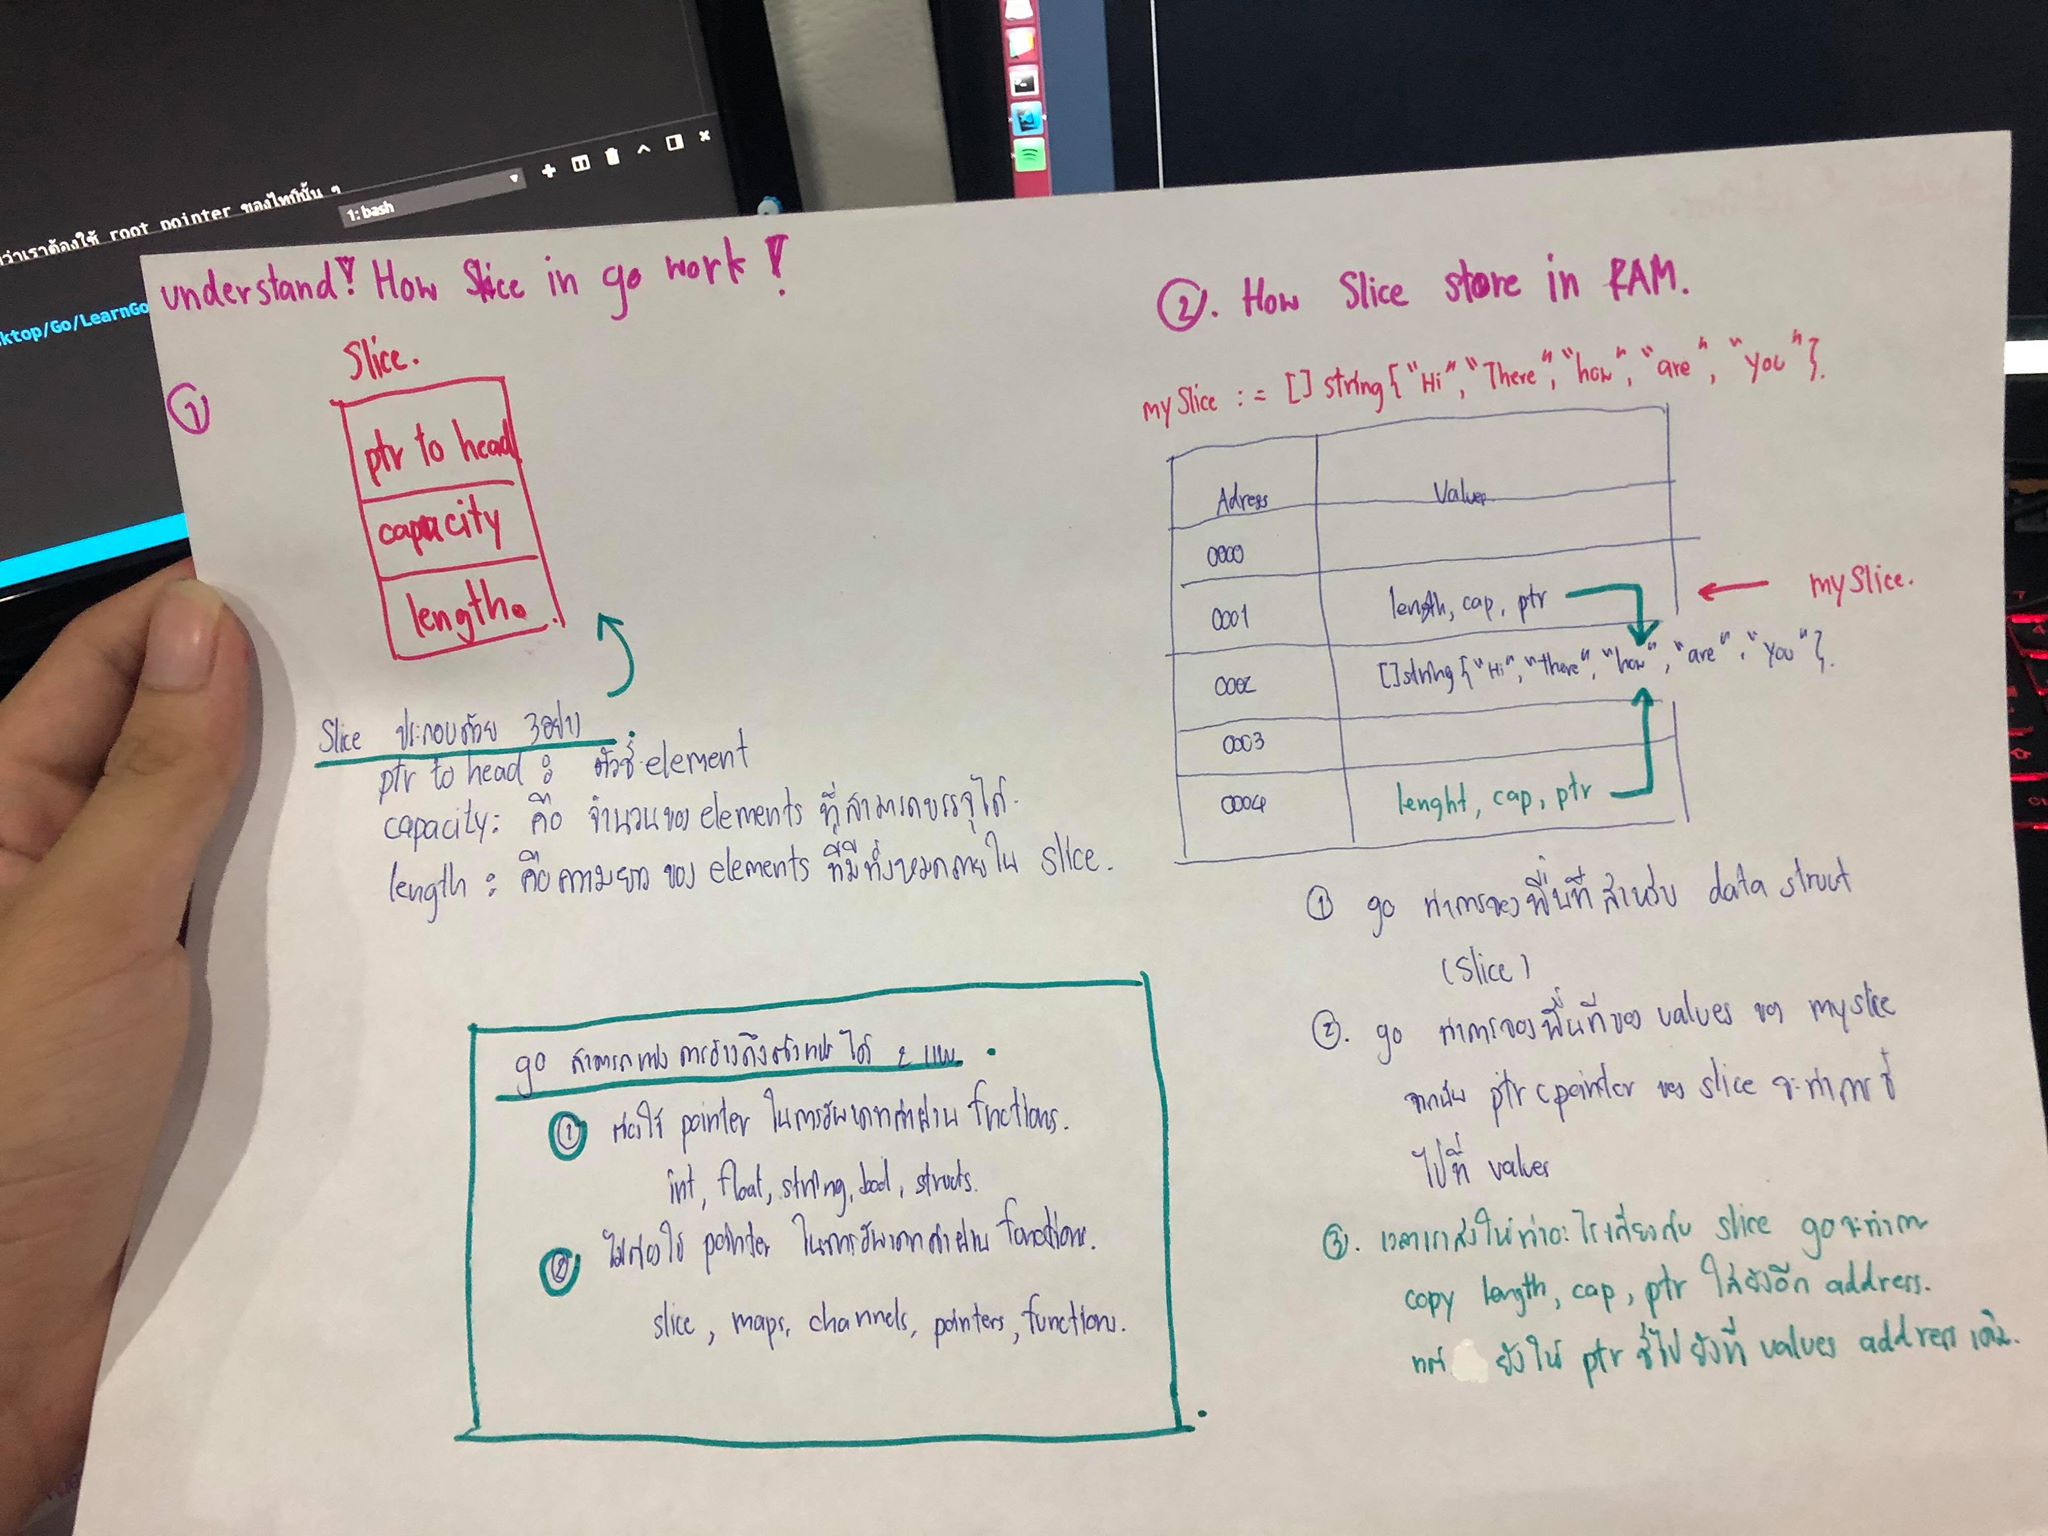 ว่าเราต้องใช้ root pointer ของไทป์นั้น ๆ
1: bash
ktop/Go/LearnGo
understand! How Slice in go work!
①
Slice.
ptr to head
capacity
length.
Slice ประกอบด้วย 3อย่าง
ptr to head : ตัวชี้ element
capacity: คือ จำนวนของ elements ที่สามารถบรรจุได้.
length : คือความยาว ของ elements ที่มีทั้งหมดภายใน slice.
go สามารถแบ่ง การอ้างถึงตำแหน่ง ได้ 2 แบบ
① ต้องใช้ pointer ในการอัพเดทค่าผ่าน fnctions.
int, float, string, bool, structs.
② ไม่ต้องใช้ pointer ในการอัพเดทค่าผ่าน functions.
slice, maps, channels, pointers, functions.
②. How Slice store in RAM.
mySlice := []string{"Hi","There","how","are","you"}.
Adress Values
0000
0001 length, cap, ptr
mySlice.
0002 []string{"Hi","there","how","are","you"}.
0003
0004 lenght, cap, ptr
① go ทำการจองพื้นที่สำหรับ data struct
(slice)
②. go ทำการจองพื้นที่ของ values ของ myslice
จากนั้น ptr cpointer ของ slice จะทำการชี้
ไปที่ values
③. เวลาเราสั่งให้ทำอะไรเกี่ยวกับ slice go จะทำการ
copy length, cap, ptr ใส่ยังอีก address.
แต่ ยังให้ ptr ชี้ไปยังที่ values address เดิม.